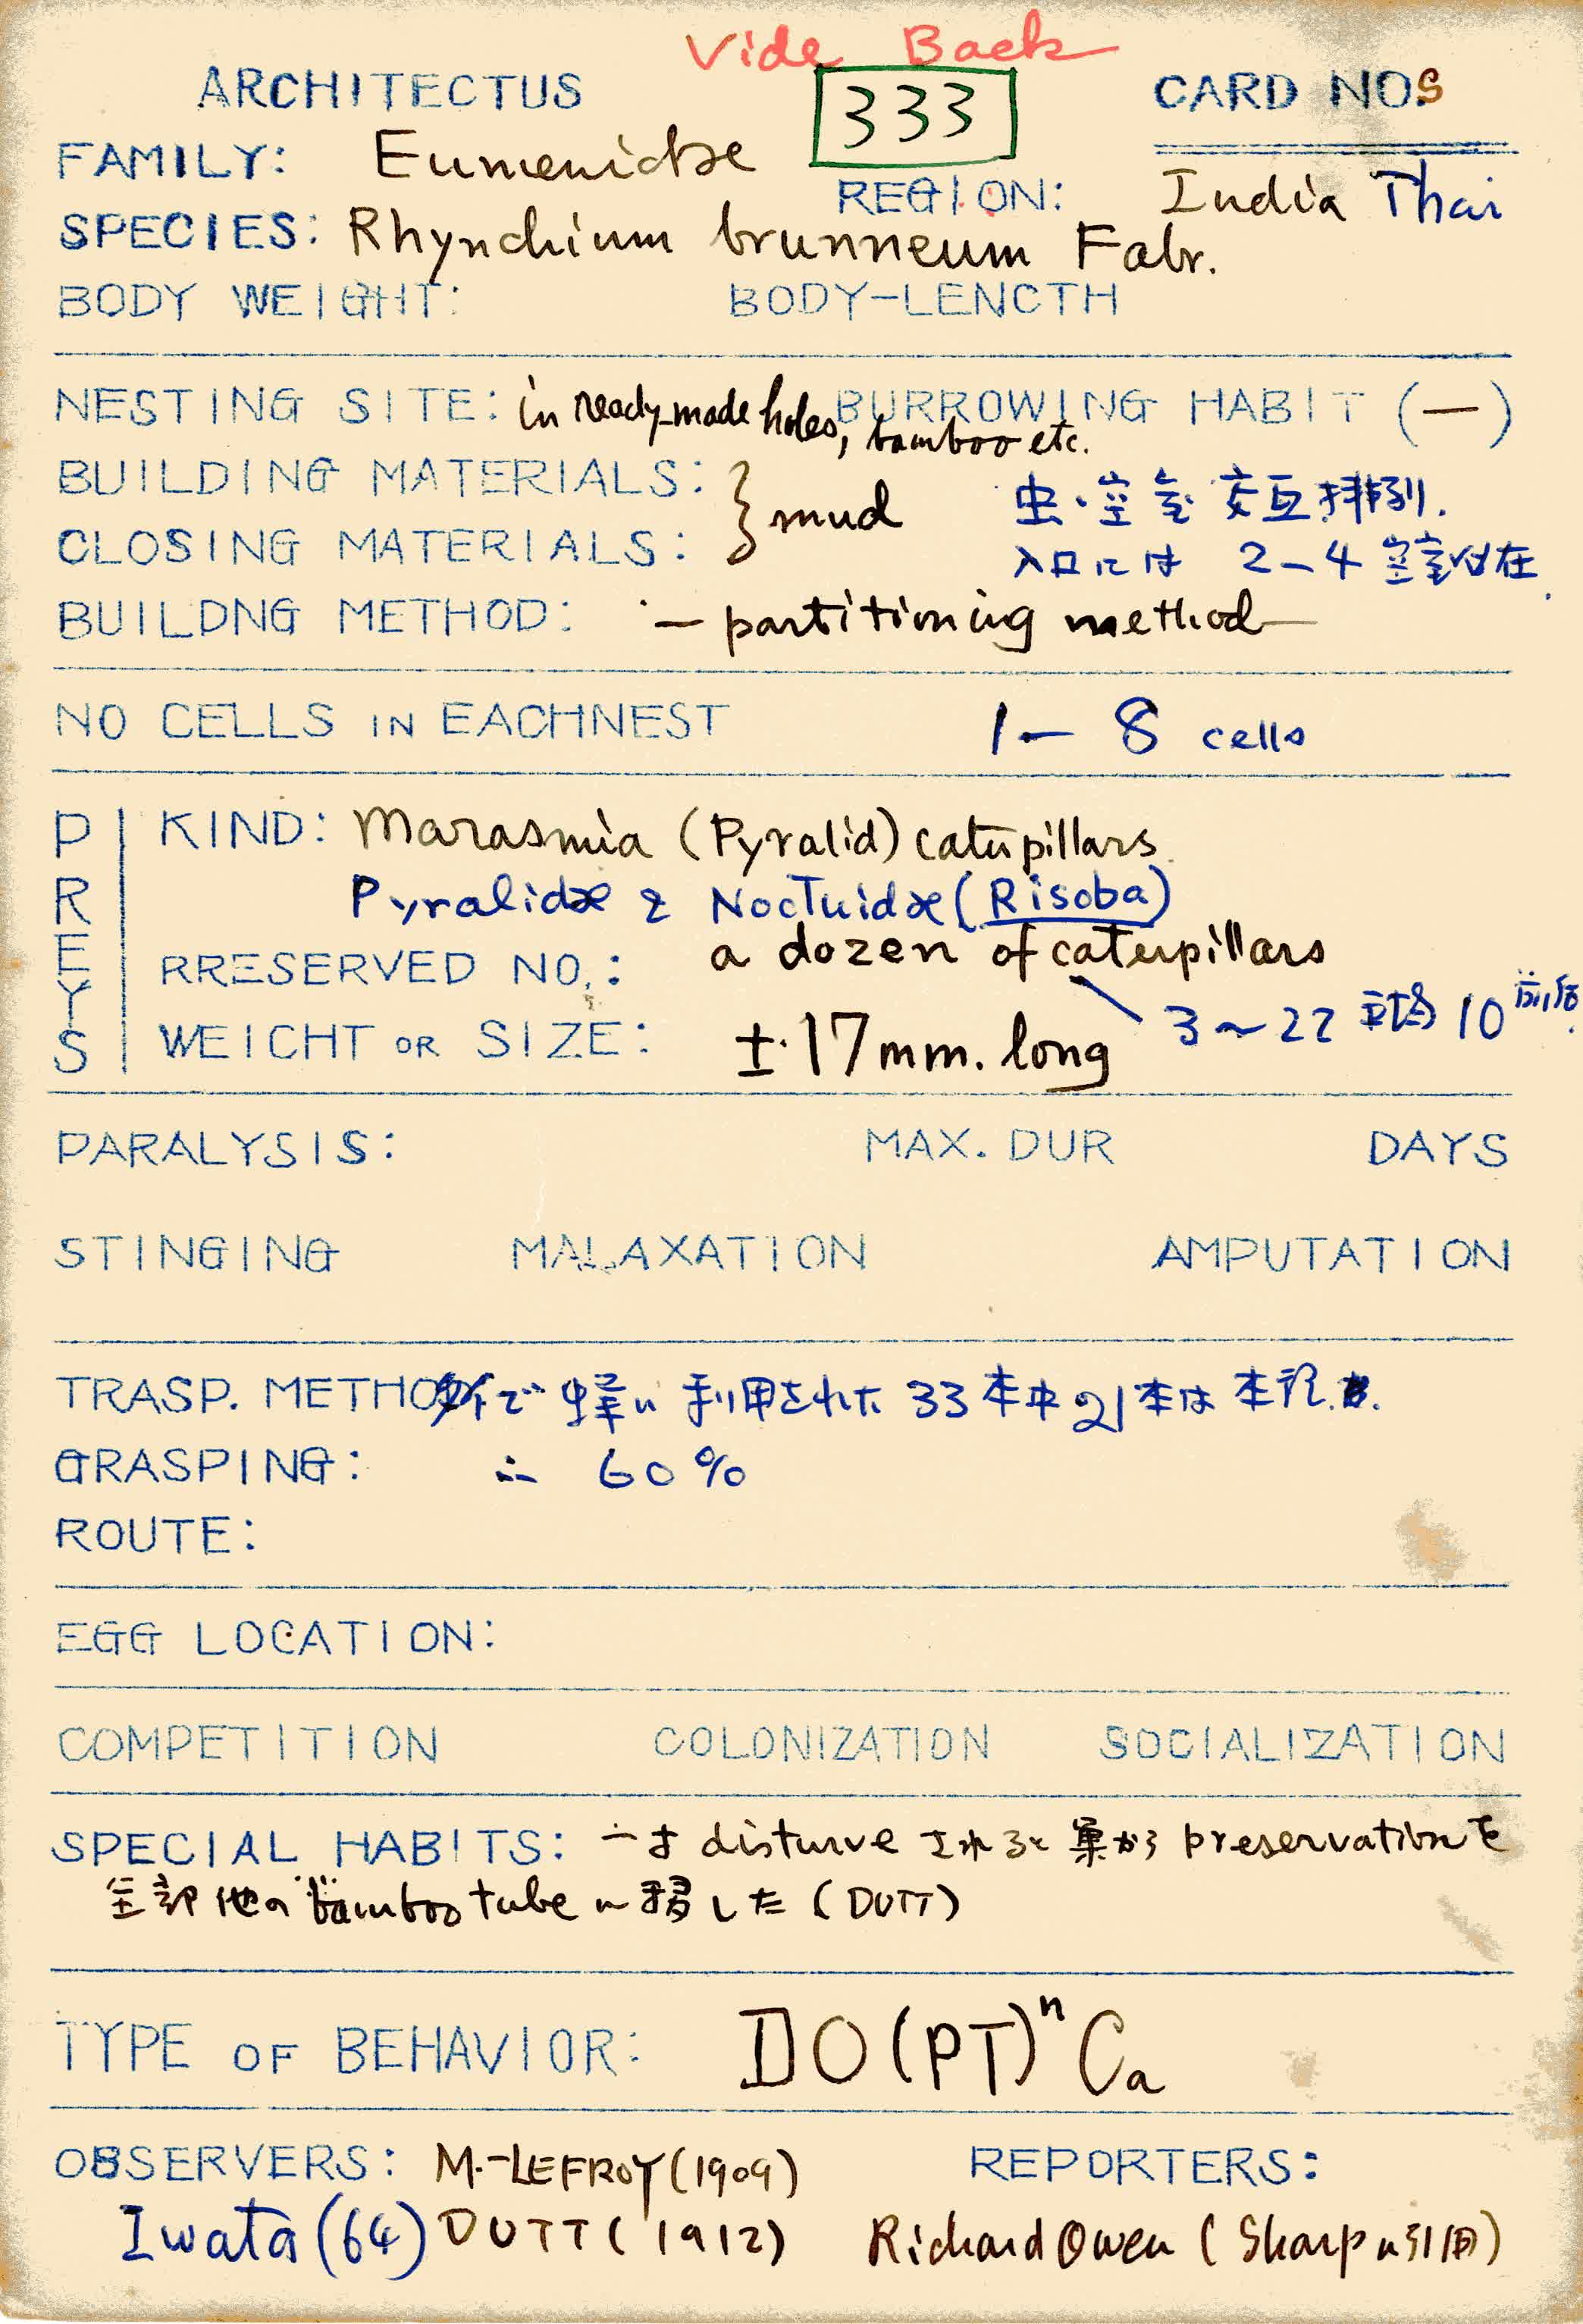 Vide Back
ARCHITECTUS 333 CARD NOS
FAMILY: Eumenidae
REGION: India Thai
SPECIES: Rhynchium brunneum Fabr.
BODY WEIGHT: BODY-LENCTH
NESTING SITE: in ready-made holes, bamboo etc. BURROWING HABIT (—)
BUILDING MATERIALS: } mud 虫・空室交互排列.
CLOSING MATERIALS: 入口には 2-4 空室
BUILDNG METHOD: — partitioning method
NO CELLS IN EACHNEST 1 — 8 cells
PREYS
KIND: Marasmia (Pyralid) caterpillars.
Pyralidae & Noctuidae (Risoba)
RRESERVED NO.: a dozen of caterpillars
3~22 10前后
WEICHT OR SIZE: ±17mm. long
PARALYSIS: MAX. DUR DAYS
STINGING MALAXATION AMPUTATION
TRASP. METHO で 蜂に利用された 33本中21本は本種.
GRASPING: ∴ 60%
ROUTE:
EGG LOCATION:
COMPETITION COLONIZATION SOCIALIZATION
SPECIAL HABITS: 一才 disturve されると巣から preservation を
全部他の bamboo tube に移した (DUTT)
TYPE OF BEHAVIOR: IO(PT)ⁿCa
OBSERVERS: M.-LEFROY (1909) REPORTERS:
Iwata (64) DUTT (1912) Richard Owen (Sharp に引用)